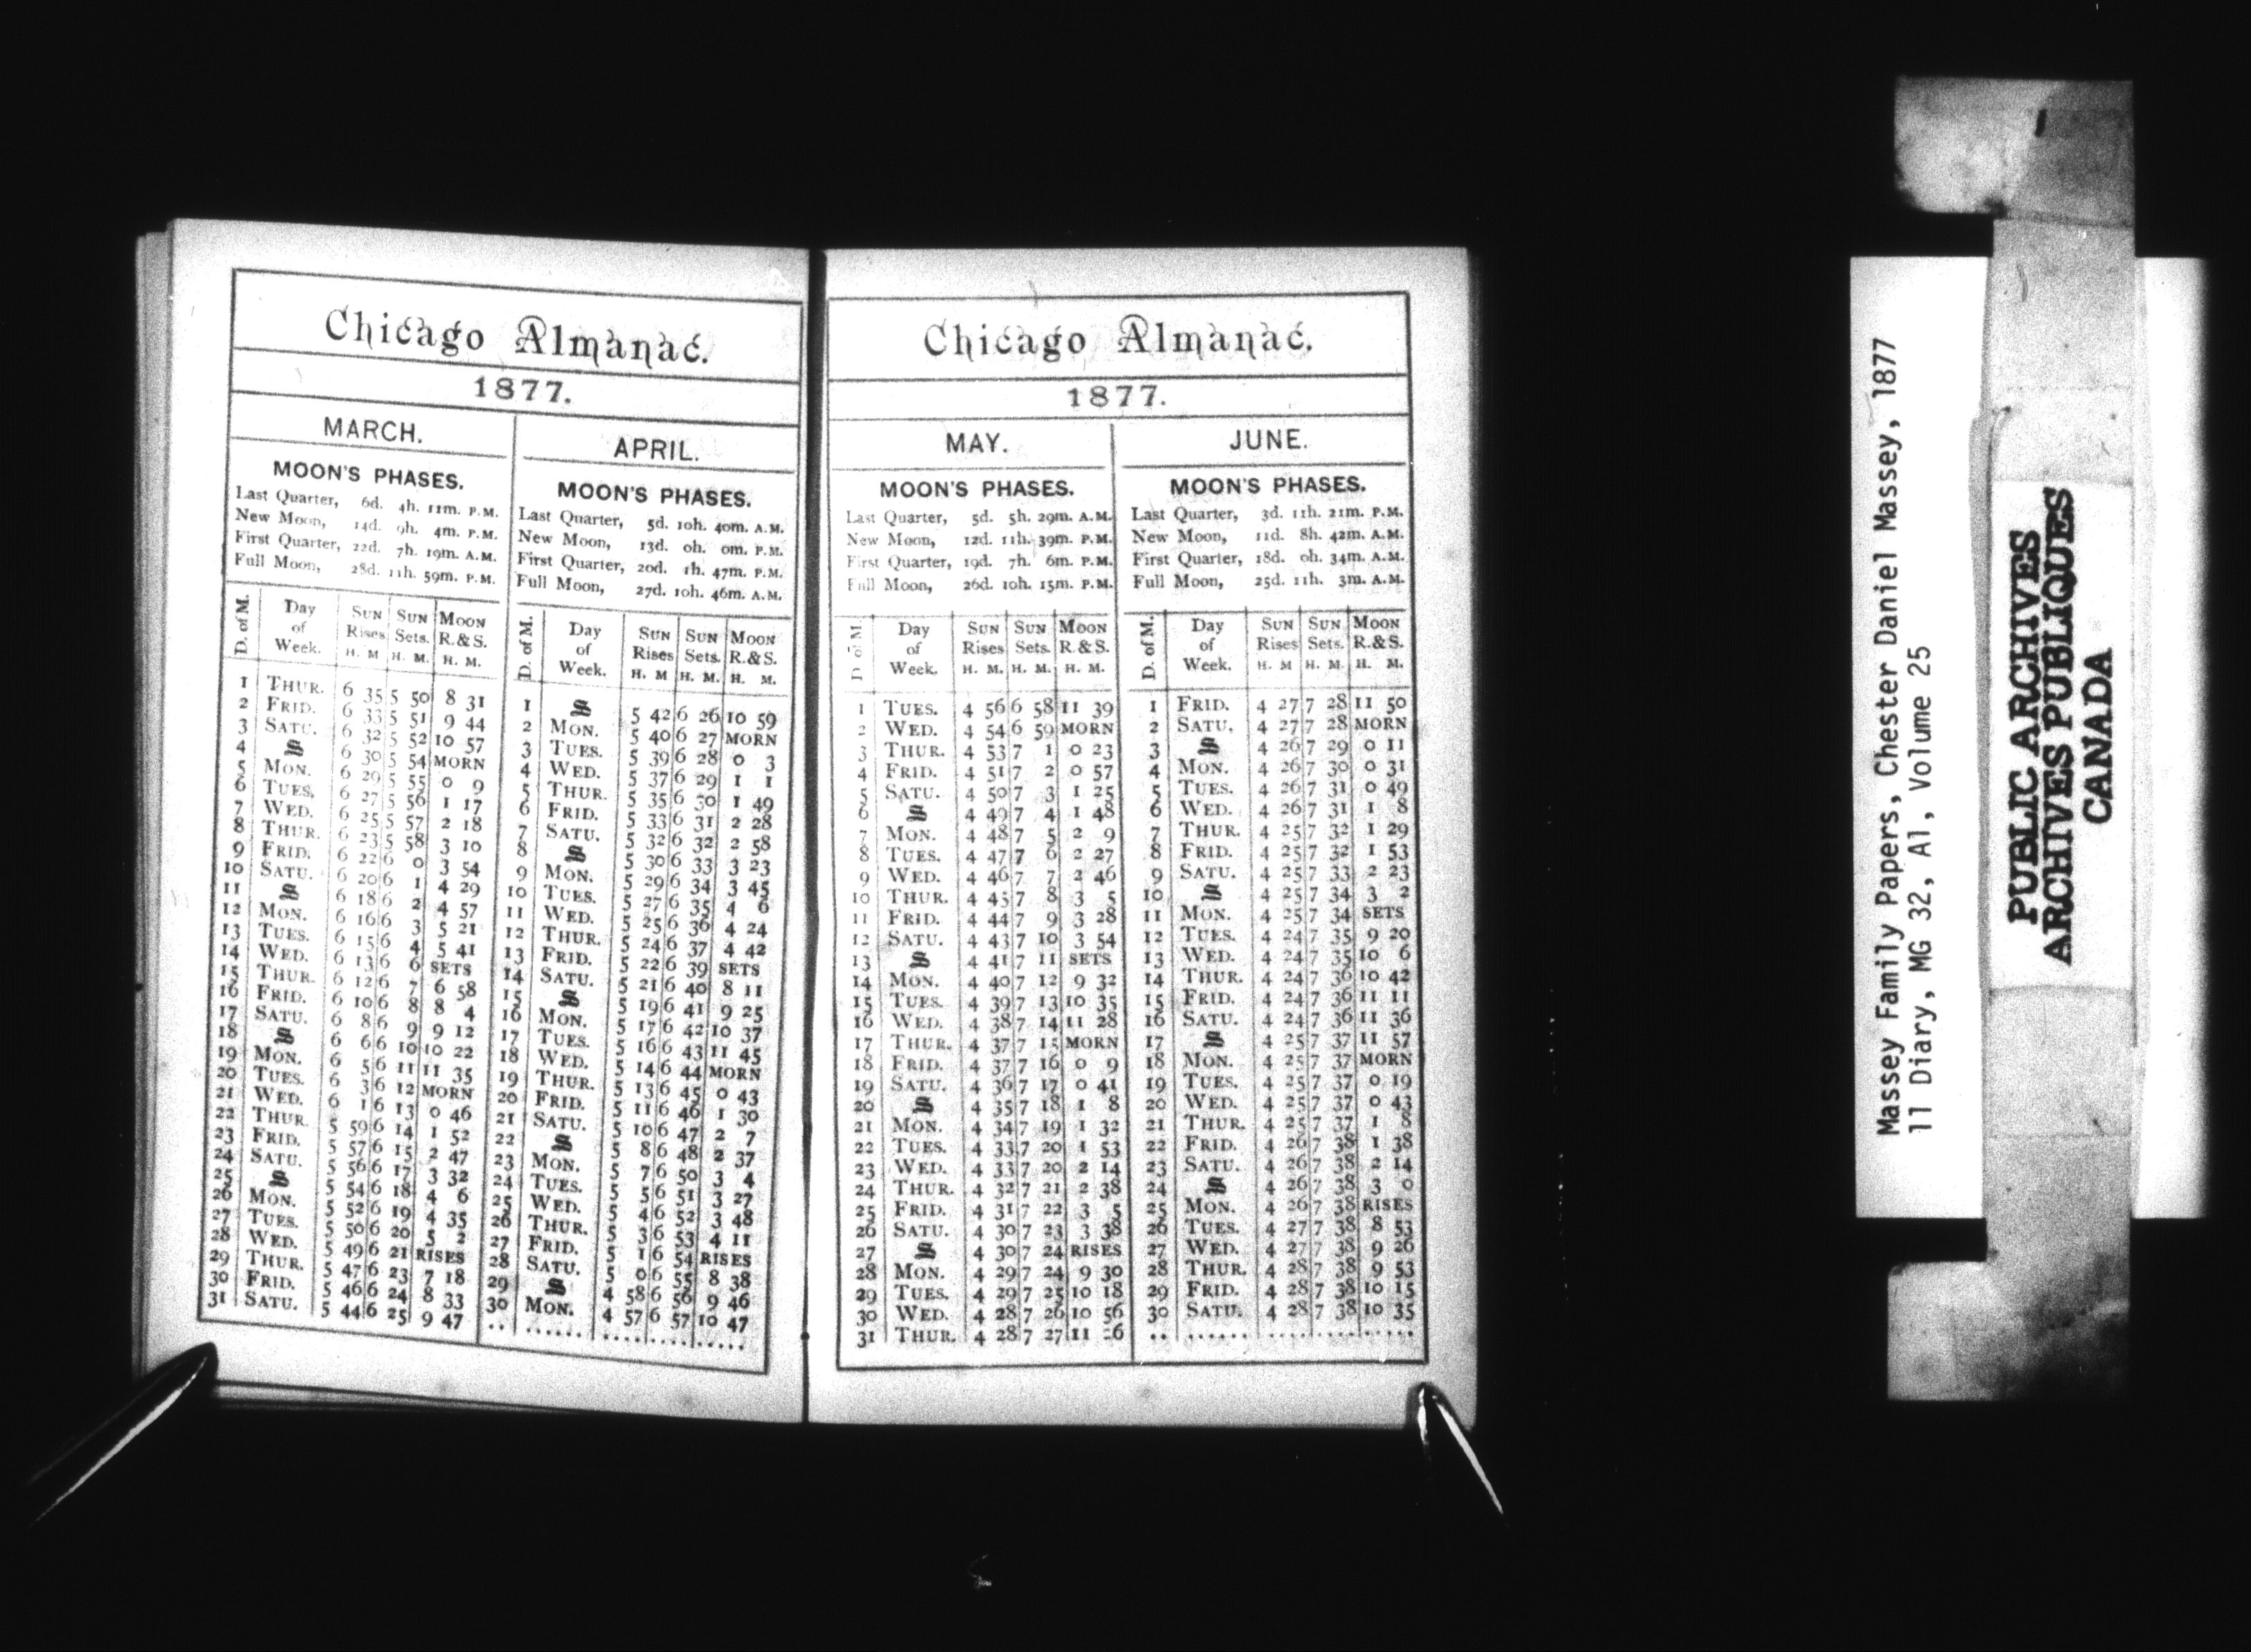 Chicago Almanac.
1877.
MARCH.
MOON'S PHASES.
Last Quarter, 6d. 4h. 11m. P.M.
New Moon, 14d. 9h. 4m. P.M.
First Quarter, 22d. 7h. 19m. A.M.
Full Moon, 28d. 11h. 59m. P.M.
D. of M. Day of Week. SUN Rises SUN Sets. MOON R.&S.
H. M H. M. H. M.
1 THUR. 6 35 5 50 8 31
2 FRID. 6 33 5 51 9 44
3 SATU. 6 32 5 52 10 57
4 S 6 30 5 54 MORN
5 MON. 6 29 5 55 0 9
6 TUES. 6 27 5 56 1 17
7 WED. 6 25 5 57 2 18
8 THUR. 6 23 5 58 3 10
9 FRID. 6 22 6 0 3 54
10 SATU. 6 20 6 1 4 29
11 S 6 18 6 2 4 57
12 MON. 6 16 6 3 5 21
13 TUES. 6 15 6 4 5 41
14 WED. 6 13 6 6 SETS
15 THUR. 6 12 6 7 6 58
16 FRID. 6 10 6 8 8 4
17 SATU. 6 8 6 9 9 12
18 S 6 6 6 10 10 22
19 MON. 6 5 6 11 11 35
20 TUES. 6 3 6 12 MORN
21 WED. 6 1 6 13 0 46
22 THUR. 5 59 6 14 1 52
23 FRID. 5 57 6 15 2 47
24 SATU. 5 56 6 17 3 32
25 S 5 54 6 18 4 6
26 MON. 5 52 6 19 4 35
27 TUES. 5 50 6 20 5 2
28 WED. 5 49 6 21 RISES
29 THUR. 5 47 6 23 7 18
30 FRID. 5 46 6 24 8 33
31 SATU. 5 44 6 25 9 47
APRIL.
MOON'S PHASES.
Last Quarter, 5d. 10h. 40m. A.M.
New Moon, 13d. 0h. 0m. P.M.
First Quarter, 20d. 1h. 47m. P.M.
Full Moon, 27d. 10h. 46m. A.M.
D. of M. Day of Week. SUN Rises SUN Sets. MOON R.&S.
H. M H. M. H. M.
1 S 5 42 6 26 10 59
2 MON. 5 40 6 27 MORN
3 TUES. 5 39 6 28 0 3
4 WED. 5 37 6 29 1 1
5 THUR. 5 35 6 30 1 49
6 FRID. 5 33 6 31 2 28
7 SATU. 5 32 6 32 2 58
8 S 5 30 6 33 3 23
9 MON. 5 29 6 34 3 45
10 TUES. 5 27 6 35 4 6
11 WED. 5 25 6 36 4 24
12 THUR. 5 24 6 37 4 42
13 FRID. 5 22 6 39 SETS
14 SATU. 5 21 6 40 8 11
15 S 5 19 6 41 9 25
16 MON. 5 17 6 42 10 37
17 TUES. 5 16 6 43 11 45
18 WED. 5 14 6 44 MORN
19 THUR. 5 13 6 45 0 43
20 FRID. 5 11 6 46 1 30
21 SATU. 5 10 6 47 2 7
22 S 5 8 6 48 2 37
23 MON. 5 7 6 50 3 4
24 TUES. 5 5 6 51 3 27
25 WED. 5 4 6 52 3 48
26 THUR. 5 3 6 53 4 11
27 FRID. 5 1 6 54 RISES
28 SATU. 5 0 6 55 8 38
29 S 4 58 6 56 9 46
30 MON. 4 57 6 57 10 47
Chicago Almanac.
1877.
MAY.
MOON'S PHASES.
Last Quarter, 5d. 5h. 29m. A.M.
New Moon, 12d. 11h. 39m. P.M.
First Quarter, 19d. 7h. 6m. P.M.
Full Moon, 26d. 10h. 15m. P.M.
D. of M Day of Week. SUN Rises SUN Sets. MOON R.&S.
H. M. H. M. H. M.
1 TUES. 4 56 6 58 11 39
2 WED. 4 54 6 59 MORN
3 THUR. 4 53 7 1 0 23
4 FRID. 4 51 7 2 0 57
5 SATU. 4 50 7 3 1 25
6 S 4 49 7 4 1 48
7 MON. 4 48 7 5 2 9
8 TUES. 4 47 7 6 2 27
9 WED. 4 46 7 7 2 46
10 THUR. 4 45 7 8 3 5
11 FRID. 4 44 7 9 3 28
12 SATU. 4 43 7 10 3 54
13 S 4 41 7 11 SETS
14 MON. 4 40 7 12 9 32
15 TUES. 4 39 7 13 10 35
16 WED. 4 38 7 14 11 28
17 THUR. 4 37 7 15 MORN
18 FRID. 4 37 7 16 0 9
19 SATU. 4 36 7 17 0 41
20 S 4 35 7 18 1 8
21 MON. 4 34 7 19 1 32
22 TUES. 4 33 7 20 1 53
23 WED. 4 33 7 20 2 14
24 THUR. 4 32 7 21 2 38
25 FRID. 4 31 7 22 3 5
26 SATU. 4 30 7 23 3 38
27 S 4 30 7 24 RISES
28 MON. 4 29 7 24 9 30
29 TUES. 4 29 7 25 10 18
30 WED. 4 28 7 26 10 56
31 THUR. 4 28 7 27 11
JUNE.
MOON'S PHASES.
Last Quarter, 3d. 11h. 21m. P.M.
New Moon, 11d. 8h. 42m. A.M.
First Quarter, 18d. 0h. 34m. A.M.
Full Moon, 25d. 11h. 3m. A.M.
D. of M. Day of Week. SUN Rises SUN Sets. MOON R.&S.
H. M H. M. H. M.
1 FRID. 4 27 7 28 11 50
2 SATU. 4 27 7 28 MORN
3 S 4 26 7 29 0 11
4 MON. 4 26 7 30 0 31
5 TUES. 4 26 7 31 0 49
6 WED. 4 26 7 31 1 8
7 THUR. 4 25 7 32 1 29
8 FRID. 4 25 7 32 1 53
9 SATU. 4 25 7 33 2 23
10 S 4 25 7 34 3 2
11 MON. 4 25 7 34 SETS
12 TUES. 4 24 7 35 9 20
13 WED. 4 24 7 35 10 6
14 THUR. 4 24 7 36 10 42
15 FRID. 4 24 7 36 11 11
16 SATU. 4 24 7 36 11 36
17 S 4 25 7 37 11 57
18 MON. 4 25 7 37 MORN
19 TUES. 4 25 7 37 0 19
20 WED. 4 25 7 37 0 43
21 THUR. 4 25 7 37 1 8
22 FRID. 4 26 7 38 1 38
23 SATU. 4 26 7 38 2 14
24 S 4 26 7 38 3 0
25 MON. 4 26 7 38 RISES
26 TUES. 4 27 7 38 8 53
27 WED. 4 27 7 38 9 26
28 THUR. 4 28 7 38 9 53
29 FRID. 4 28 7 38 10 15
30 SATU. 4 28 7 38 10 35
Massey Family Papers, Chester Daniel Massey, 1877
11 Diary, MG 32, A1, Volume 25
PUBLIC ARCHIVES
ARCHIVES PUBLIQUES
CANADA